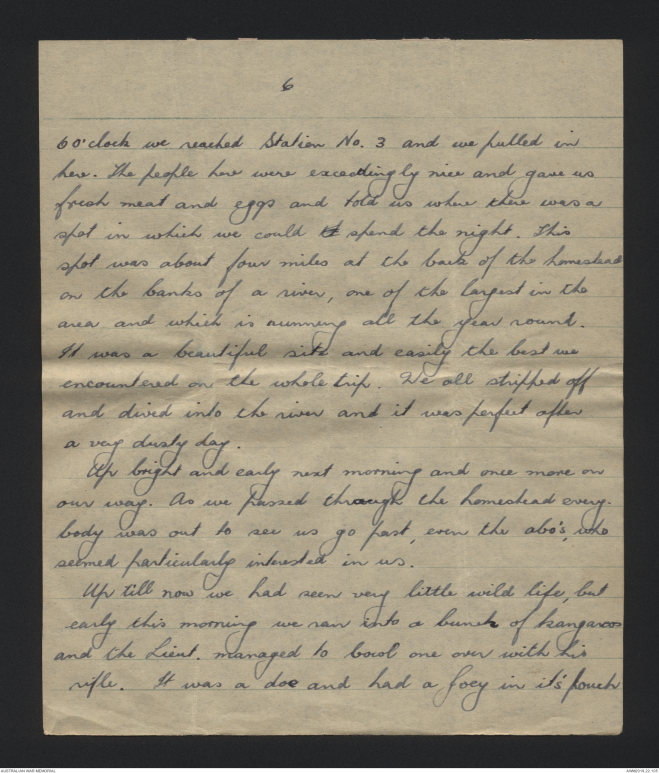 6
6 o'clock we reached Station No. 3 and we pulled in
here. The people here were exceedingly nice and gave us
fresh meat and eggs and told us where there was a
spot in which we could spend the night. This
spot was about four miles at the back of the homestead
on the banks of a river, one of the largest in the
area and which is running all the year round.
It was a beautiful site and easily the best we
encountered on the whole trip. We all stripped off
and dived into the river and it was perfect after
a very dusty day.
Up bright and early next morning and once more on
our way. As we passed through the homestead every-
body was out to see us go past, even the abo's, who
seemed particularly interested in us.
Up till now we had seen very little wild life, but
early this morning we ran into a bunch of kangaroos
and the Lieut. managed to bowl one over with his
rifle. It was a doe and had a joey in it's pouch
AUSTRALIAN WAR MEMORIAL